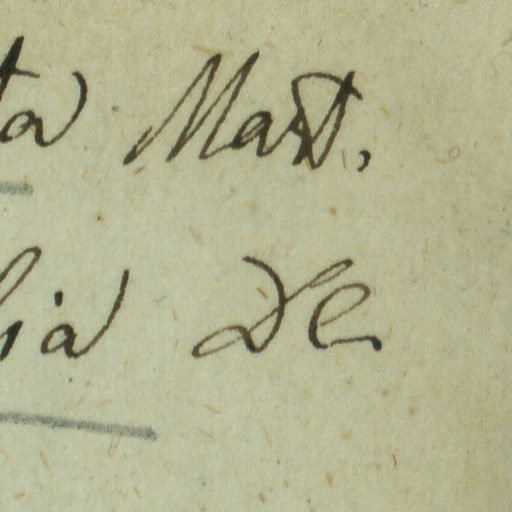 ta Mart.
lia De